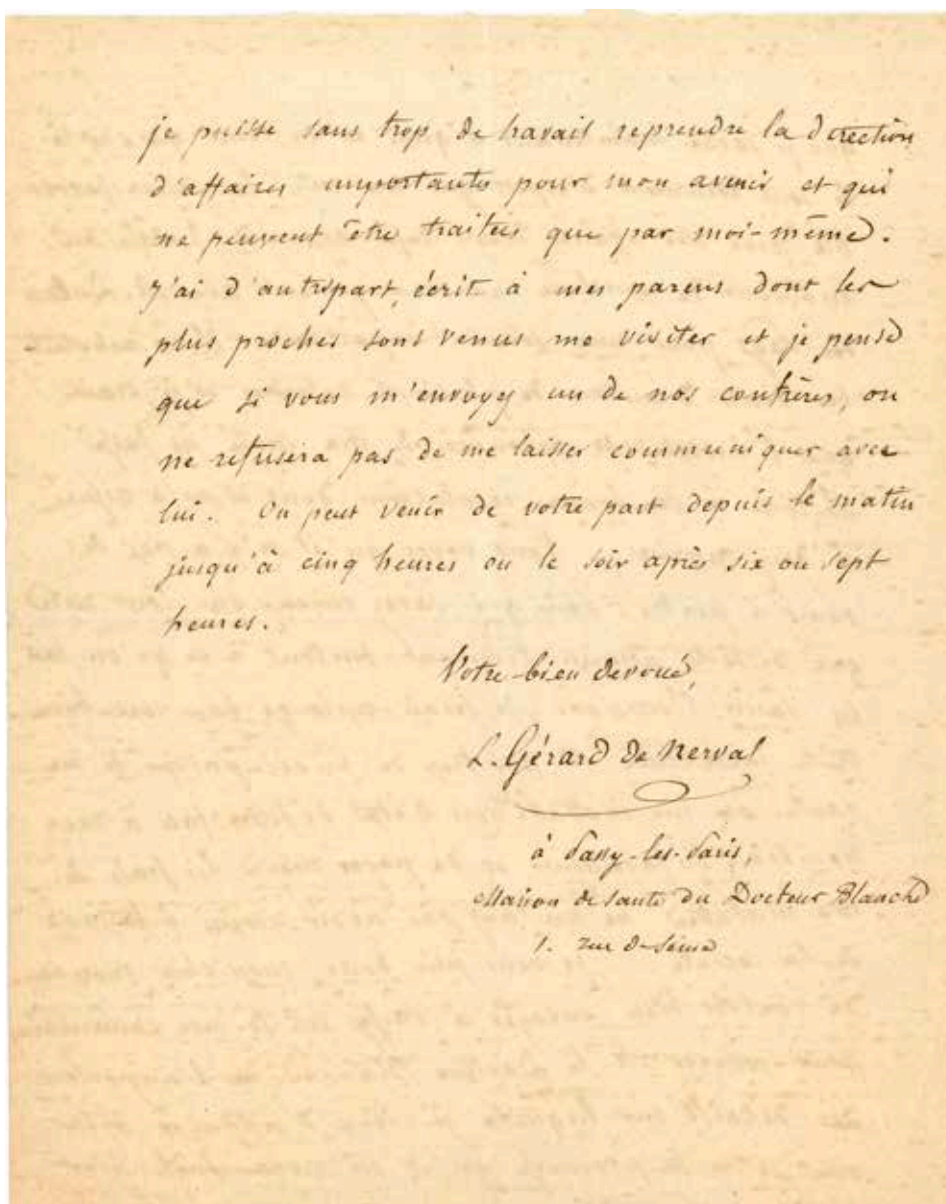 je puisse sans trop de travail reprendre la direction
d'affaires importantes pour mon avenir et qui
ne peuvent être traitées que par moi-même.
J'ai d'autrepart, écrit à mes parens dont les
plus proches sont venus me visiter et je pense
que si vous m'envoyez un de nos confrères, on
ne refusera pas de me laisser communiquer avec
lui. On peut venir de votre part depuis le matin
jusqu'à cinq heures ou le soir après six ou sept
heures.
Votre bien devoué,
L. Gérard de Nerval
à Passy-les-Paris,
Maison de santé du Docteur Blanche
1. rue de Seine